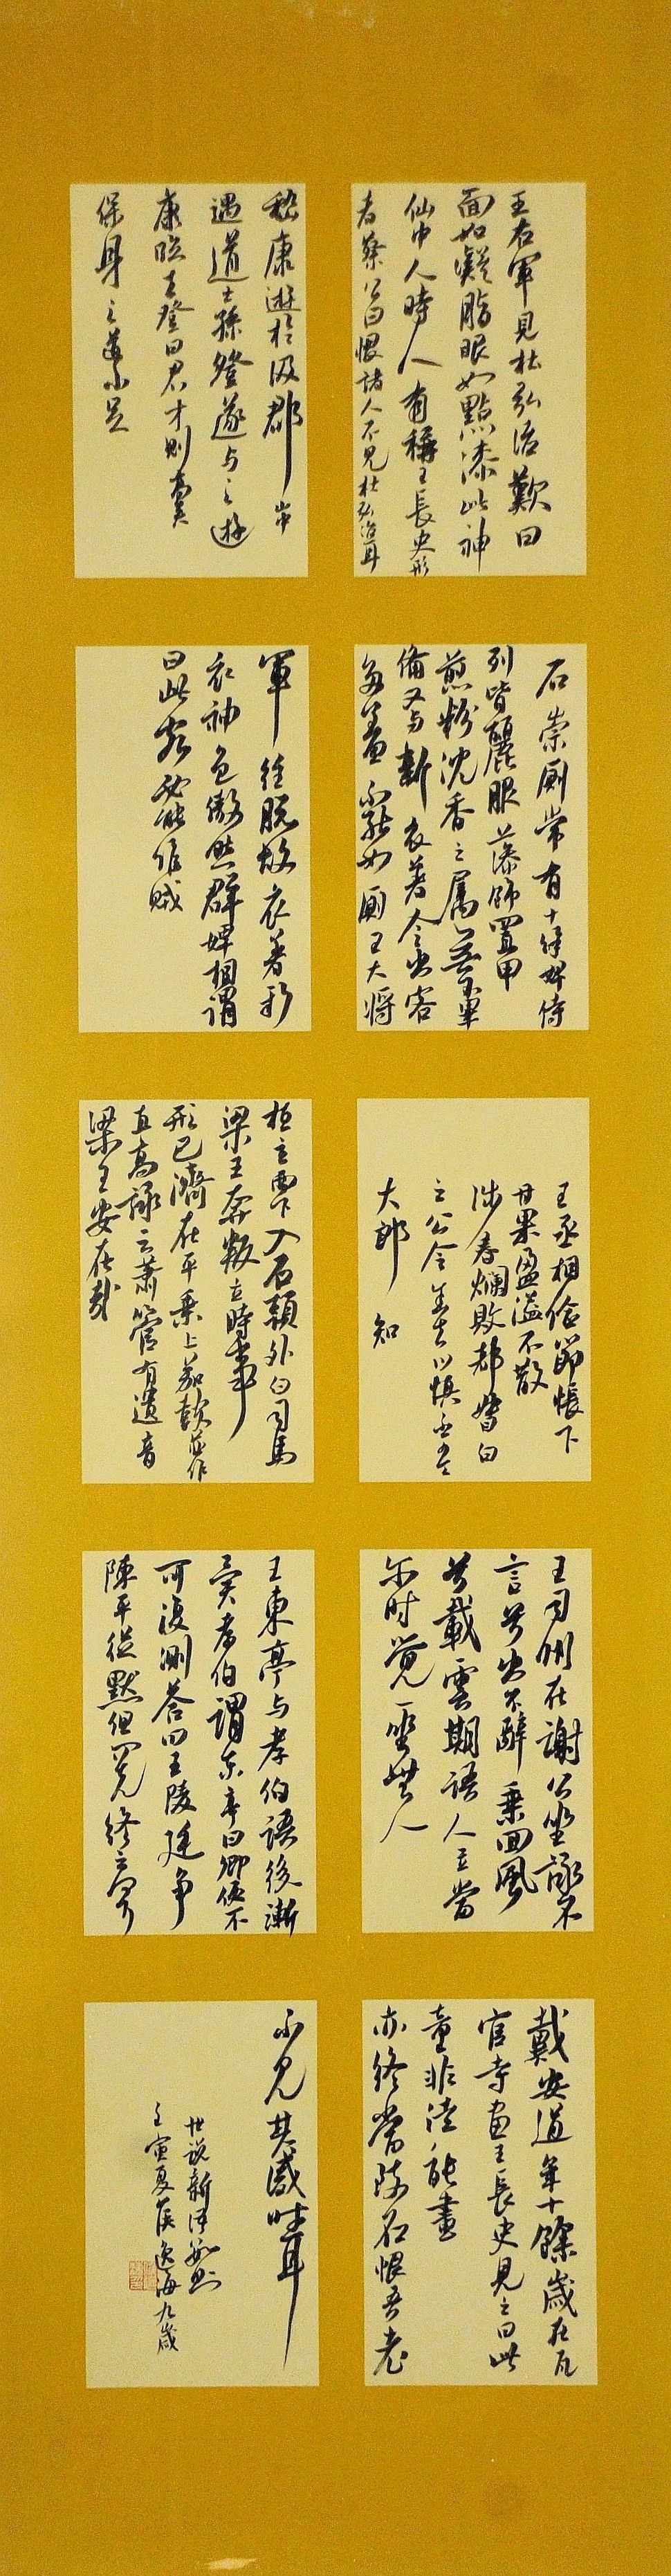 王右軍見杜弘治歎曰
面如凝脂眼如點漆此神
仙中人時人有稱王長史形
者蔡公曰恨諸人不見杜弘治耳
嵇康遊於汲郡山中
遇道士孫登遂與之遊
康臨去登曰君才則高矣
保身之道不足
石崇厠常有十餘婢侍
列皆麗服藻飾置甲
煎粉沈香之屬無不畢
備又與新衣著令出客
多羞不能如厠王大將
軍往脫故衣著新
衣神色傲然群婢相謂
曰此客必能作賊
王丞相儉節帳下
甘果盈溢不散
涉春爛敗都督白
之公令舍去曰慎不可令
大郎知
桓玄西下入石頭外白司馬
梁王奔叛玄時事
形已濟在平乘上笳鼓並作
直高詠云蕭管有遺音
梁王安在哉
王司州在謝公坐詠入不
言兮出不辭乘回風
兮載雲旗語人云當
尔时覺一坐無人
王東亭与孝伯語後漸
異孝伯謂東亭曰卿便不
可復測答曰王陵廷争
陳平從默但問克終云何耳
戴安道年十餘歲在瓦
官寺畫王長史見之曰此
童非徒能畫
亦終當致名恨吾老
不見其盛時耳
世說新語數則
壬寅夏侯逸海九歲